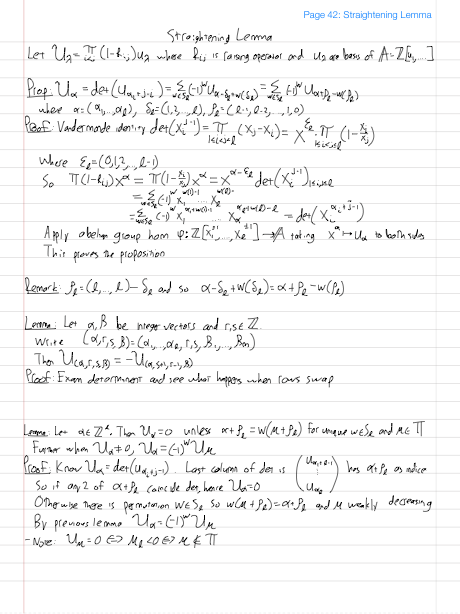 Page 42: Straightening Lemma
Straightening Lemma
Let U_α = ∏_{i<j} (1-R_ij) u_α where R_ij is raising operator and u_α are basis of A = Z[u_1,...]
Prop: U_α = det(U_{α_i+j-i}) = Σ_{w∈S_ℓ} (-1)^w U_{α-δ_ℓ+w(δ_ℓ)} = Σ_{w∈S_ℓ} (-1)^w U_{α+ρ_ℓ-w(ρ_ℓ)}
where α=(α_1,...,α_ℓ), δ_ℓ=(1,2,...,ℓ), ρ_ℓ=(ℓ-1,ℓ-2,...,1,0)
Proof: Vandermonde identity det(X_i^{j-1}) = ∏_{1≤i<j≤ℓ} (X_j-X_i) = X^{ε_ℓ} ∏_{1≤i<j≤ℓ} (1-X_i/X_j)
Where ε_ℓ=(0,1,2,...,ℓ-1)
So ∏(1-R_ij)X^α = ∏(1-X_i/X_j)X^α = X^{α-ε_ℓ} det(X_i^{j-1})_{1≤i,j≤ℓ}
= Σ_{w∈S_ℓ} (-1)^w X_1^{w(1)-1} ... X_ℓ^{w(ℓ)-1}
= Σ_{w∈S_ℓ} (-1)^w X_1^{α_1+w(1)-1} ... X_ℓ^{α_ℓ+w(ℓ)-ℓ} = det(X_i^{α_i+j-i})
Apply abelian group hom φ: Z[X_1^{±1},...,X_ℓ^{±1}] → A taking X^α ↦ U_α to both sides
This proves the proposition
Remark: ρ_ℓ=(ℓ,...,ℓ)-δ_ℓ and so α-δ_ℓ+w(δ_ℓ)=α+ρ_ℓ-w(ρ_ℓ)
Lemma: Let α,β be integer vectors and r,s∈Z.
Write (α,r,s,β)=(α_1,...,α_ℓ,r,s,β_1,...,β_m)
Then U_{(α,r,s,β)} = -U_{(α,s-1,r+1,β)}
Proof: Exam determinent and see what happens when rows swap
Lemma: Let α∈Z^ℓ. Then U_α=0 unless α+ρ_ℓ=w(μ+ρ_ℓ) for unique w∈S_ℓ and μ∈Π
Further when U_α≠0, U_α=(-1)^w U_μ
Proof: Know U_α=det(U_{α_i+j-i}). Last column of det is (U_{α_1+ℓ-1} ⋮ U_{α_ℓ}) has α+ρ_ℓ as indice
So if any 2 of α+ρ_ℓ coincide det, hence U_α=0
Otherwise there is permutation w∈S_ℓ so w(μ+ρ_ℓ)=α+ρ_ℓ and μ weakly decreasing
By previous lemma U_α=(-1)^w U_μ
- Note: U_μ=0 ⇔ μ_ℓ<0 ⇔ μ∉Π